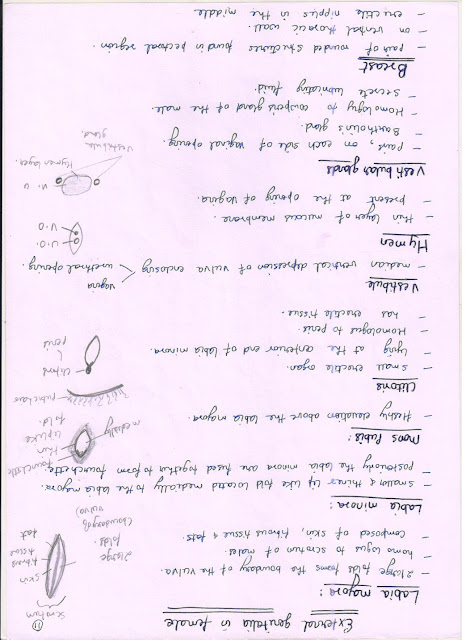 11
External genitalia in female
Labia majora:
- 2 large folds forms the boundary of the vulva.
- homologus to scrotum of males
- composed of, skin, fibrous tissue & fats.
scrotum
skin
fibrous
tissue
fat
2 large
folds.
(boundary of
vulva)
Labia minora:
- smaller & thiner lip like fold located medially to the labia majora.
- posteriorly the labia minora are fused together to form fourchette
fourchette
thin
lip like
fold.
medially
Mons Pubis:
- fleshy elevation above the labia majora.
pubic hair
Clitoris
- small erectile organ.
- lying at the anterior end of labia minora.
- Homologus to penis.
- has erectile tissue.
clitoris
penis
Vestibule
- median ventrical depression of vulva enclosing
vagina
urethral opening.
Hymen
- thin layer of mucous membrane.
- present at the opening of vagina.
U.O
V.O
Vestibular glands
- pair, on each side of vaginal opening.
- Bartholin's gland.
- Homologus to cowper's gland of the male.
- secrete lubricating fluid.
V.O
Hymen layer.
Vestibular
gland.
Breast
- pair of rounded structures found in pectoral region.
- on ventral thoracic wall.
- erectile nipples in the middle.